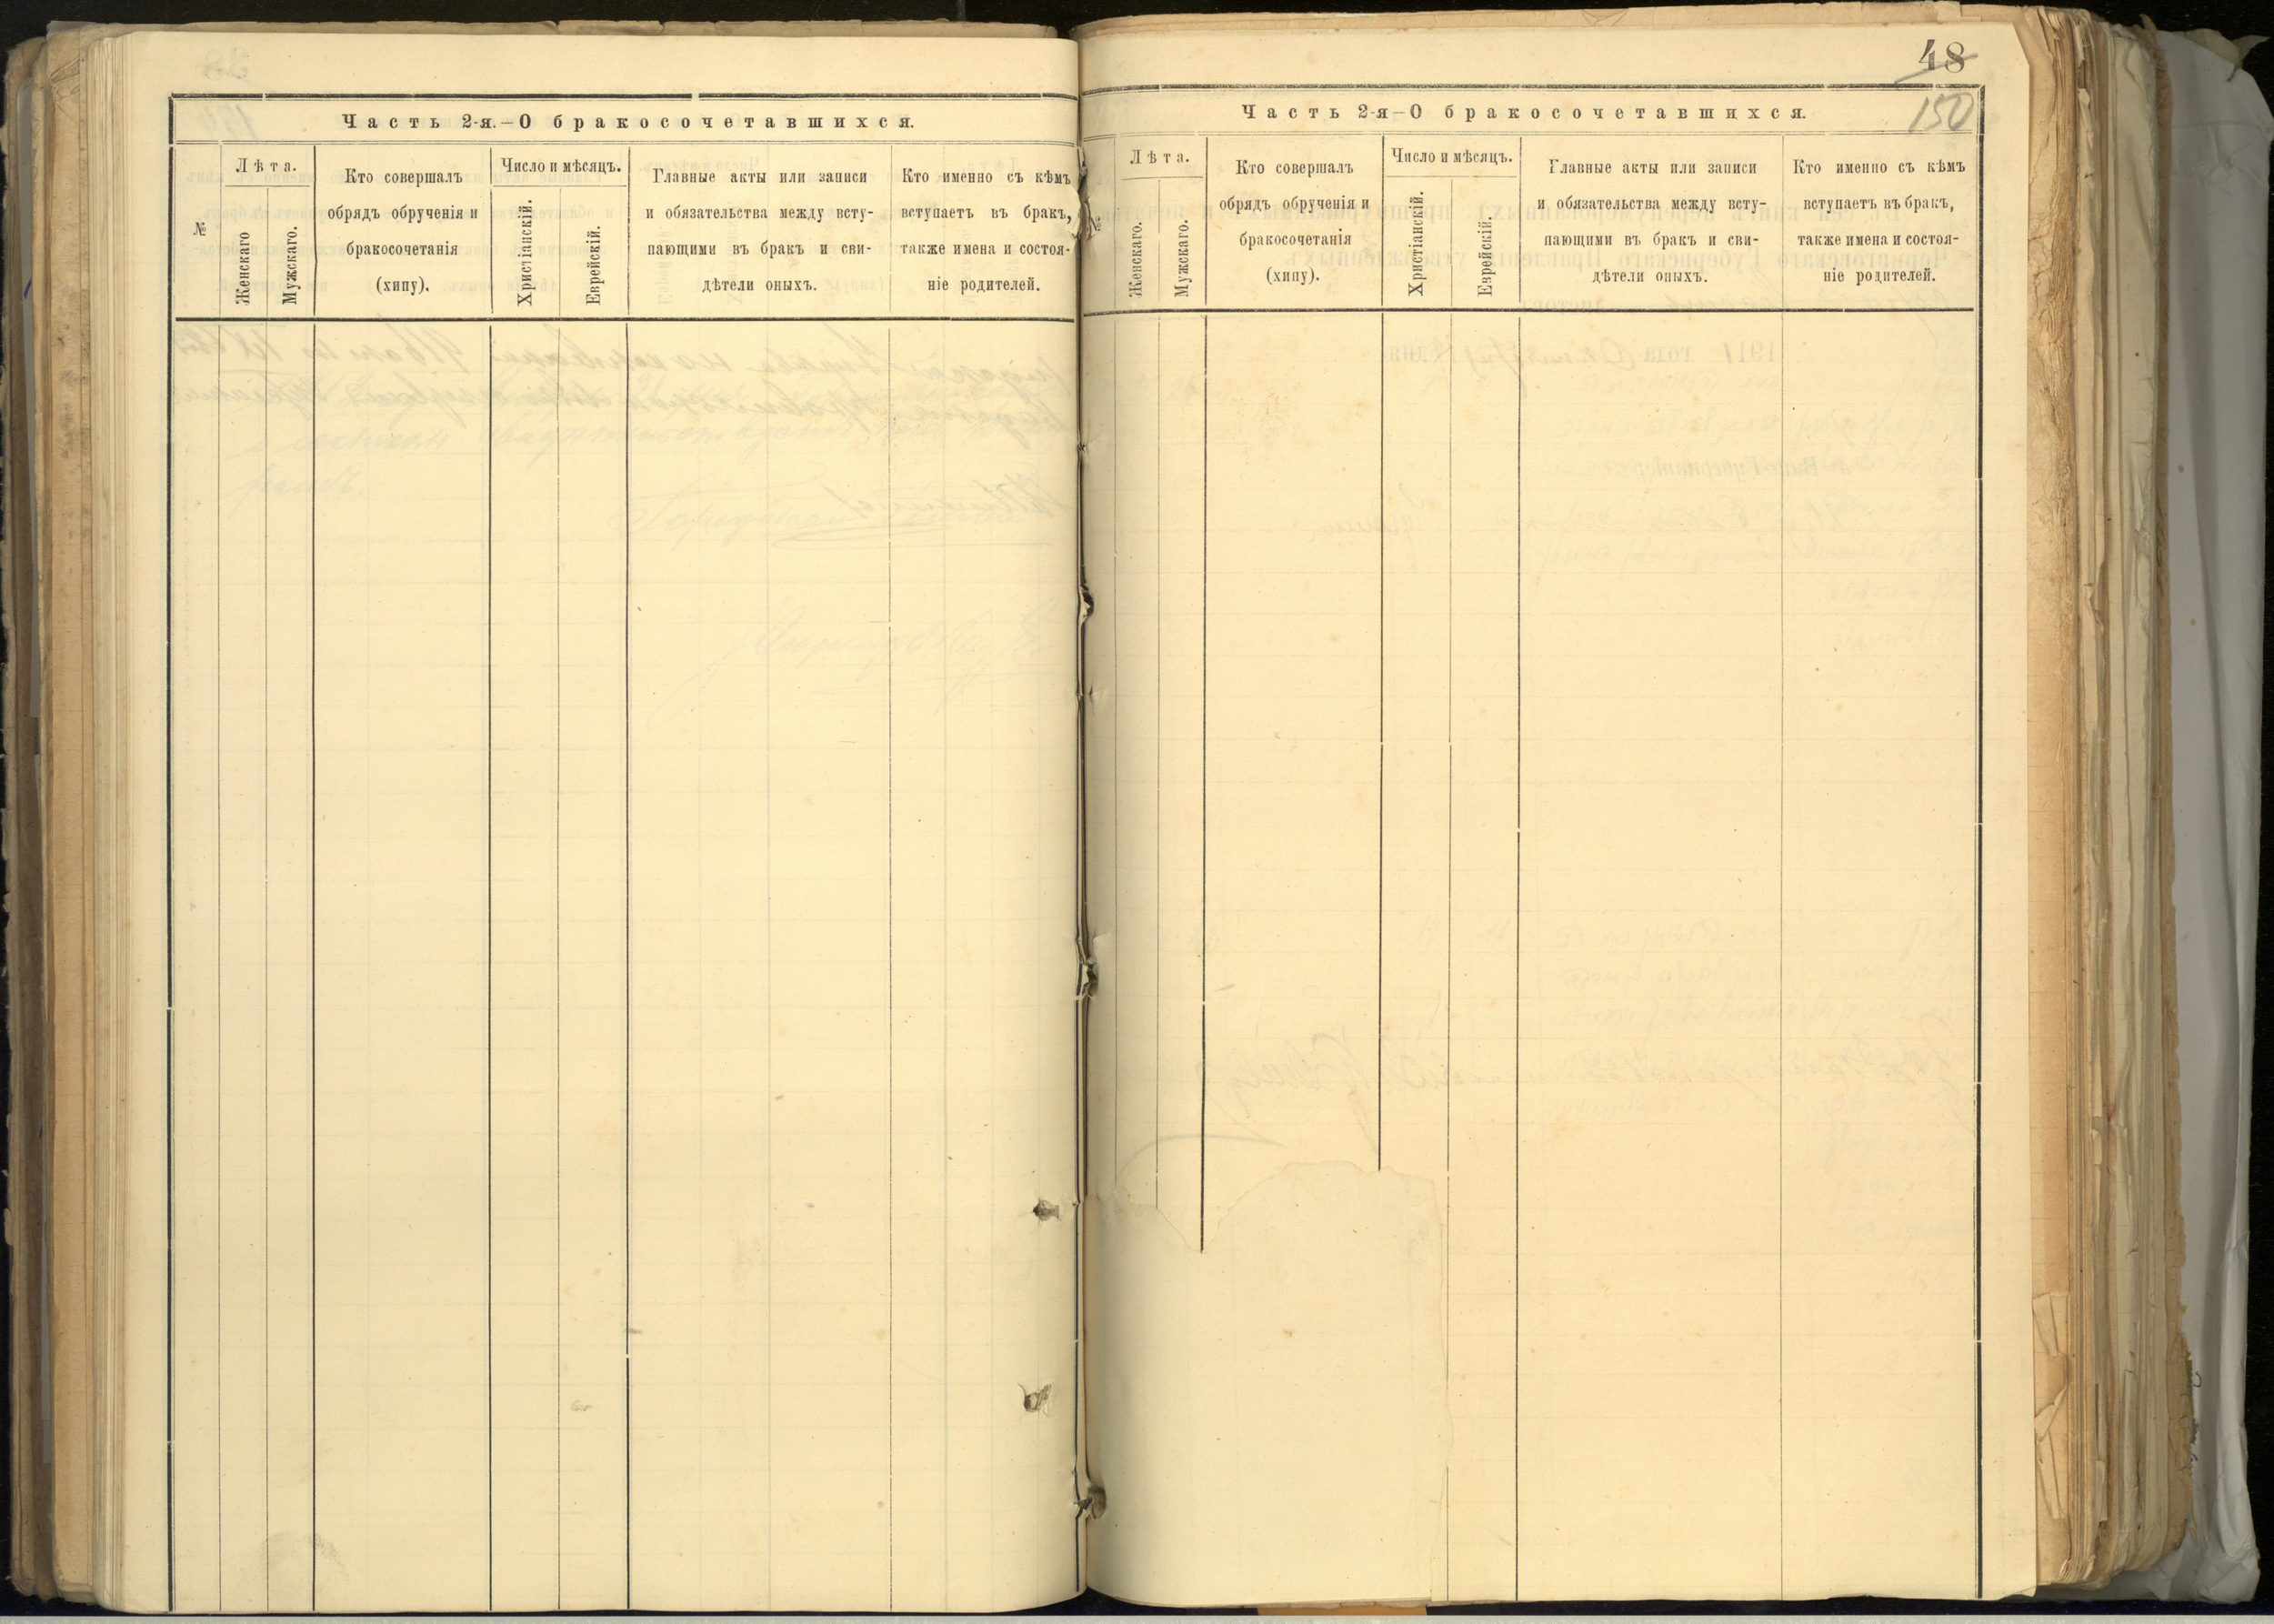 Часть 2-я.—О бракосочетавшихся.
№
Лѣта.
Женскаго
Мужскаго.
Кто совершалъ
обрядъ обрученія и
бракосочетанія
(хипу).
Число и мѣсяцъ.
Христіанскій.
Еврейскій.
Главные акты или записи
и обязательства между всту-
пающими въ бракъ и сви-
дѣтели оныхъ.
Кто именно съ кѣмъ
вступаетъ въ бракъ,
также имена и состоя-
ніе родителей.
48
150
Часть 2-я—О бракосочетавшихся.
№
Лѣта.
Женскаго.
Мужскаго.
Кто совершалъ
обрядъ обрученія и
бракосочетанія
(хипу).
Число и мѣсяцъ.
Христіанскій.
Еврейскій.
Главные акты или записи
и обязательства между всту-
пающими въ бракъ и сви-
дѣтели оныхъ.
Кто именно съ кѣмъ
вступаетъ въ бракъ,
также имена и состоя-
ніе родителей.